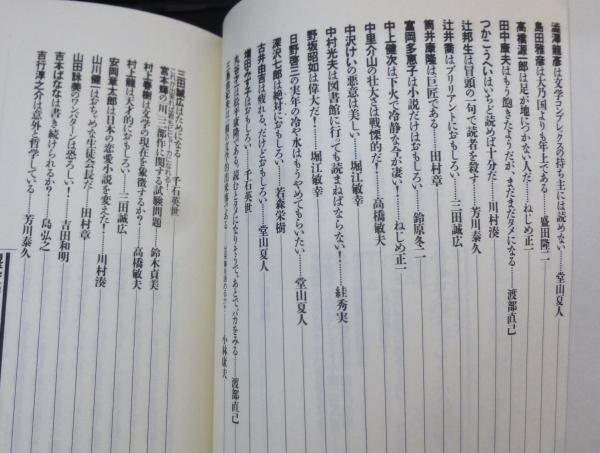 澁澤龍彥は文学コンプレックスの持ち主には読めない……堂山夏人
島田雅彦は大乃国よりも年上である……盛田隆二
高橋源一郎は足が地につかない人だ……ねじめ正一
田中康夫はもう飽きたそうだが、まだまだタメになる……渡部直己
つかこうへいはいちど読めば十分だ……川村湊
辻邦生は冒頭の一句で読者を殺す……芳川泰久
辻井喬はブリリアントにおもしろい……三田誠広
筒井康隆は巨匠である……田村章
富岡多恵子は小説だけはおもしろい……鈴原冬二
中上健次は下火で冷静なみが凄い!……ねじめ正一
中里介山の壮大さは戦慄的だ!……高橋敏夫
中沢けいの悪意は美しい……堀江敏幸
中村光夫は図書館に行っても読まねばならない!……絓秀実
野坂昭如は偉大だ!……堀江敏幸
日野啓三の実年の冷や水はもうやめてもらいたい……堂山夏人
深沢七郎は絶対におもしろい……若森栄樹
古井由吉は疲れる、だけどおもしろい……堂山夏人
増田みず子はおもしろい……千石英世
三田誠広はためになる……千石英世
宮本輝の川三部作に関する試験問題……鈴木貞美
村上春樹は文学の現在を象徴するか?……高橋敏夫
村上龍は天才的におもしろい……三田誠広
安岡章太郎は日本の恋愛小説を変えた!……川村湊
山川健一はおちゃめな生徒会長だ……田村章
山田詠美のワンパターンは恐ろしい!……吉田和明
吉本ばななは書き続けられるか?……島弘之
吉行淳之介は意外と哲学している……芳川泰久